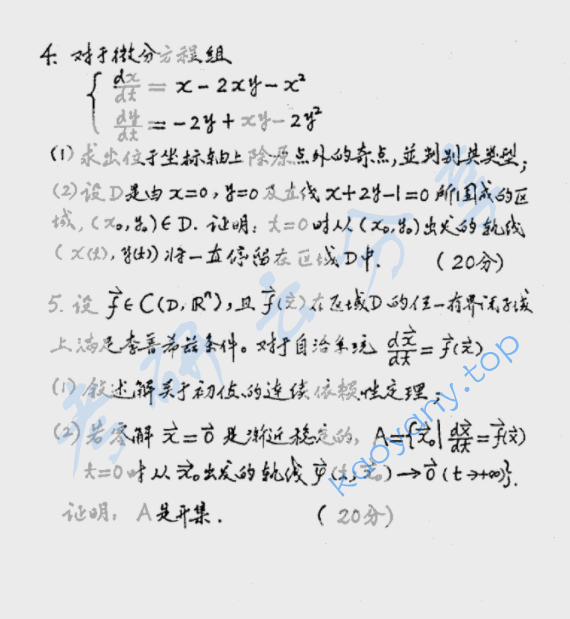 4. 对于微分方程组
{ dx/dt = x - 2xy - x²
dy/dt = -2y + xy - 2y²
(1) 求出位于坐标轴上除原点外的奇点,並判别其类型;
(2) 设D是由x=0, y=0及直线x+2y-1=0所围成的区
域, (x₀, y₀)∈D. 证明: t=0时从(x₀, y₀)出发的轨线
(x(t), y(t))将一直停留在区域D中. (20分)
5. 设 f⃗∈C(D, ℝⁿ), 且f⃗(x⃗)在区域D的任一有界闭子域
上满足李普希兹条件。对于自治系统 dx⃗/dt = f⃗(x⃗)
(1) 叙述解关于初值的连续依赖性定理;
(2) 若零解 x⃗=0⃗ 是渐近稳定的, A={x⃗₀| dx⃗/dt=f⃗(x⃗)
t=0时从x⃗₀出发的轨线φ⃗(t, x⃗₀)→0⃗(t→+∞)}.
证明: A是开集. (20分)
考研云分享
kaoyany.top